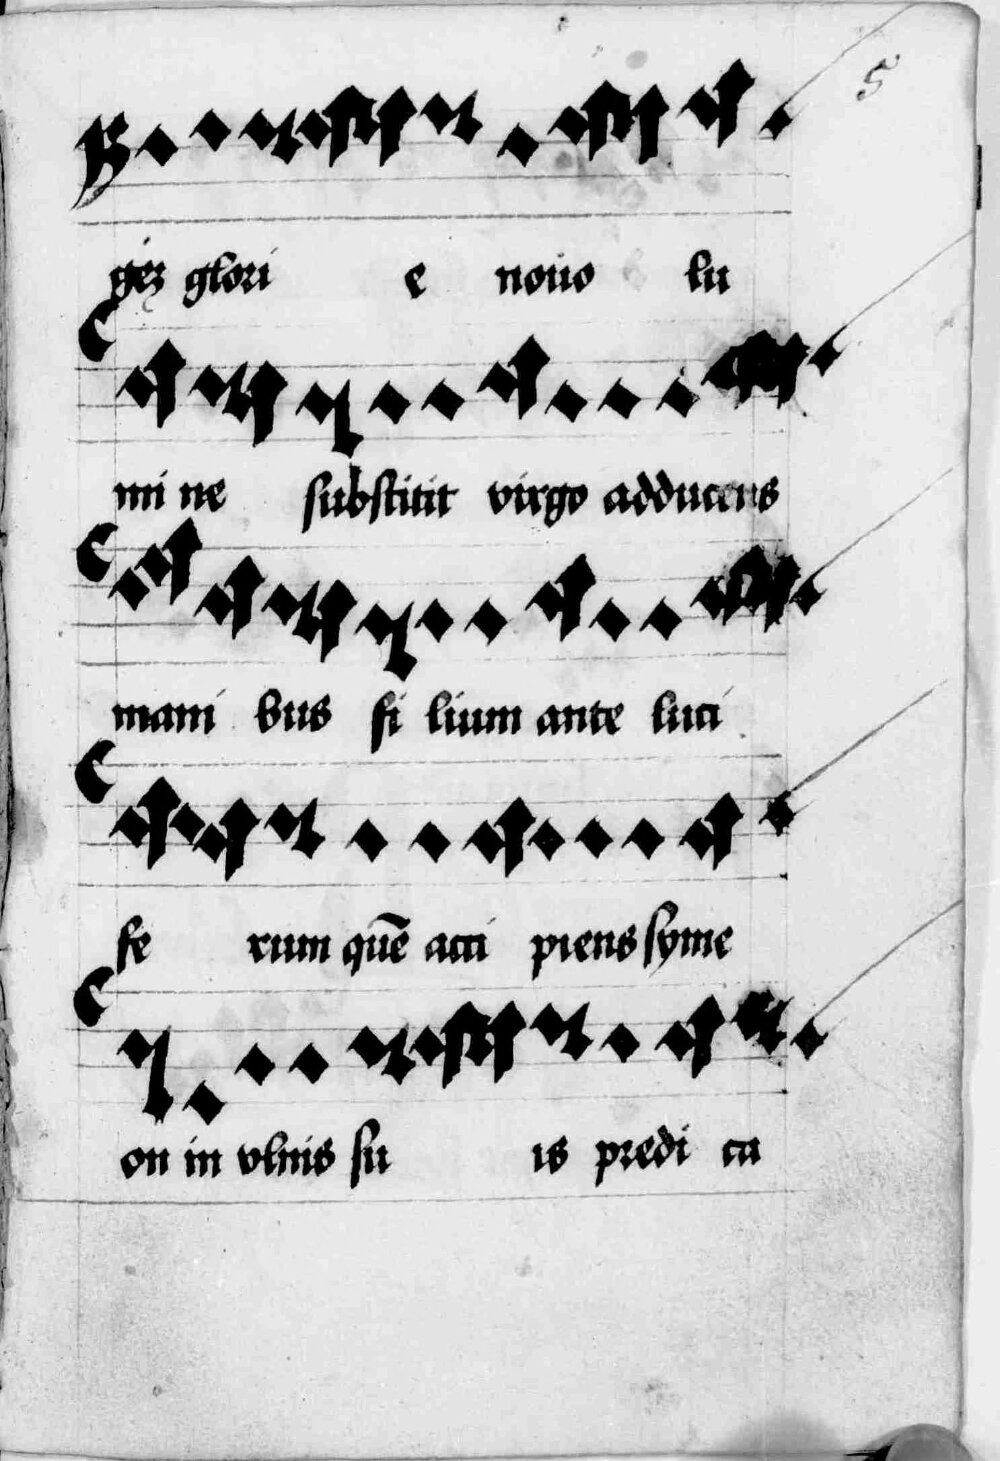 5
gez glori e nouo lu
mi ne substitit virgo adducens
mani bus fi lium ante luci
fe rum quē acci piens syme
on in vlnis su is predi ca